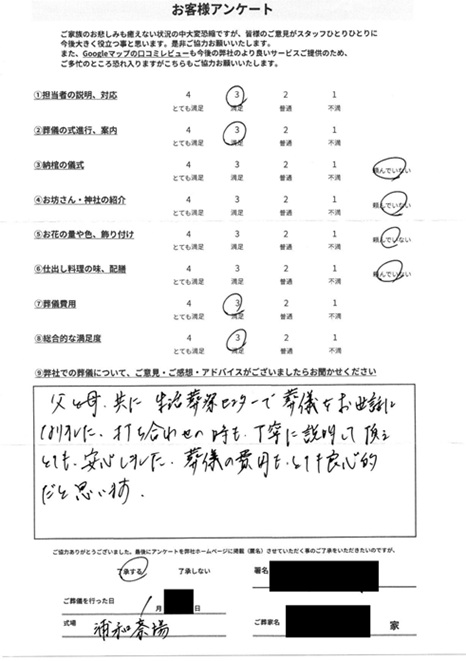 お客様アンケート
ご家族のお悲しみも癒えない状況の中大変恐縮ですが、皆様のご意見がスタッフひとりひとりに
今後大きく役立つ事と思います。是非ご協力お願いいたします。
また、Googleマップの口コミレビューも今後の弊社のより良いサービスご提供のため、
ご多忙のところ恐れ入りますがこちらもご協力お願いいたします。
①担当者の説明、対応 4 3 2 1
とても満足 満足 普通 不満
②葬儀の式進行、案内 4 3 2 1
とても満足 満足 普通 不満
③納棺の儀式 4 3 2 1 頼んでいない
とても満足 満足 普通 不満
④お坊さん・神社の紹介 4 3 2 1 頼んでいない
とても満足 満足 普通 不満
⑤お花の量や色、飾り付け 4 3 2 1 頼んでいない
とても満足 満足 普通 不満
⑥仕出し料理の味、配膳 4 3 2 1 頼んでいない
とても満足 満足 普通 不満
⑦葬儀費用 4 3 2 1
とても満足 満足 普通 不満
⑧総合的な満足度 4 3 2 1
とても満足 満足 普通 不満
⑨弊社での葬儀について、ご意見・ご感想・アドバイスがございましたらお聞かせください
父と母、共に 生活葬祭センターで 葬儀をお世話に
なりました、打ち合わせの時も、丁寧に説明して頂き
とても、安心しました、葬儀の費用も、とても良心的
だと思います、
ご協力ありがとうございました。最後にアンケートを弊社ホームページに掲載（匿名）させていただく事のご了承をいただきたいのですが、
了承する 了承しない 署名
ご葬儀を行った日 月 日
式場 浦和斎場 ご葬家名 家